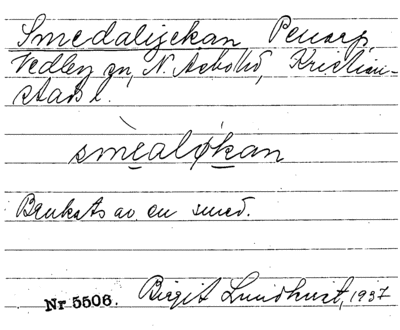 Smedalyckan, Penarp,
Vedby sn, N. Åsbo hd, Kristian-
stads l.
smèalỳkan
Brukats av en smed.
Nr 5506. Birgit Lundkvist, 1937